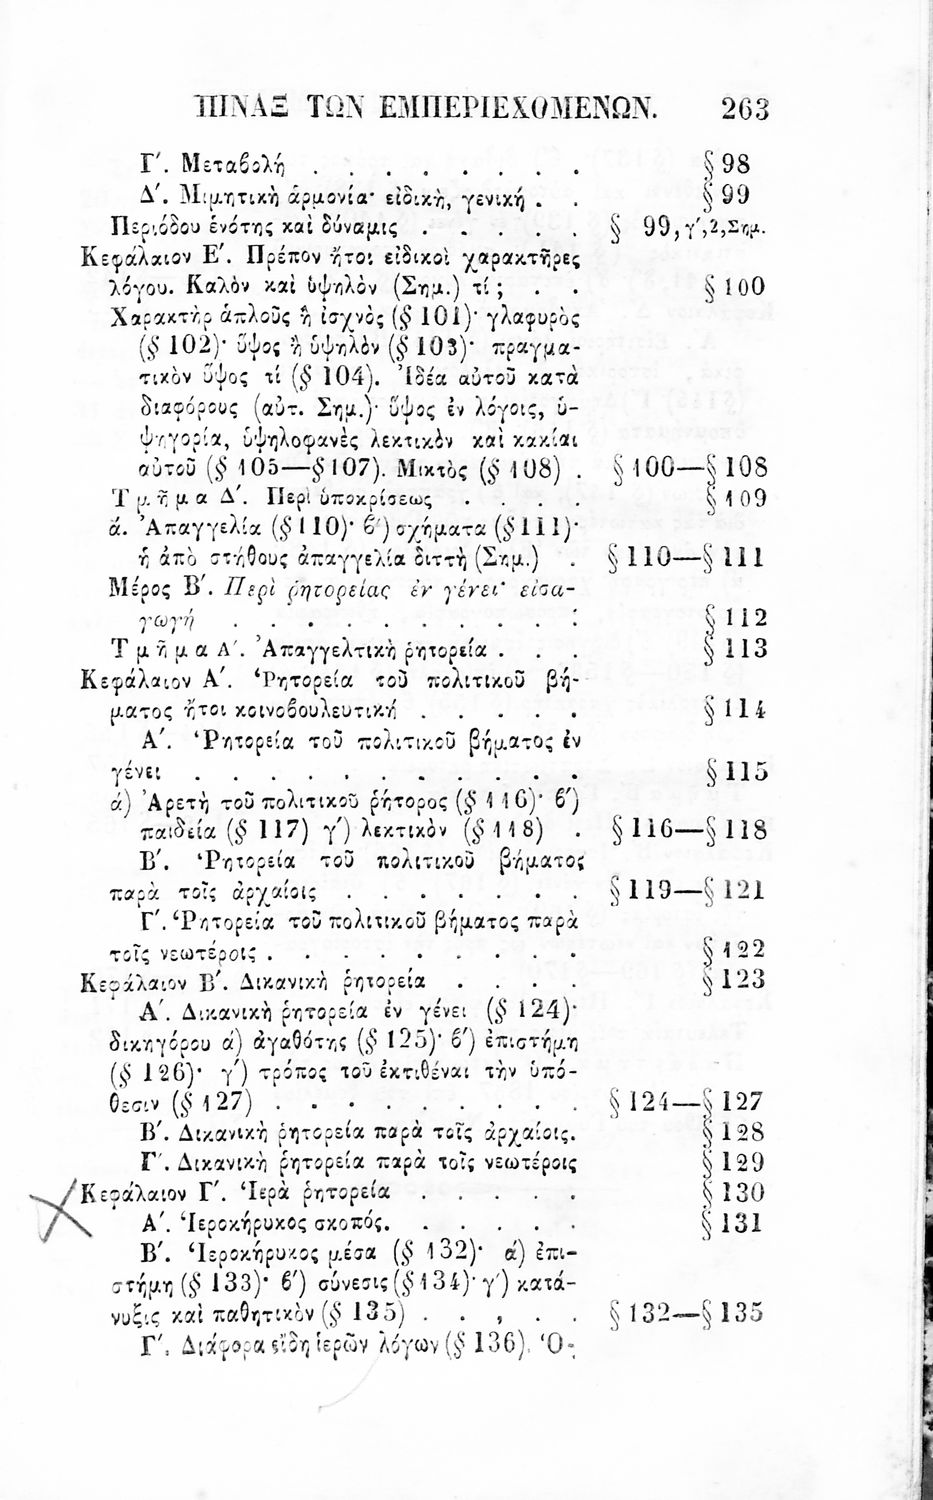 ΠΙΝΑΞ ΤΩΝ ΕΜΠΕΡΙΕΧΟΜΕΝΩΝ. 263
Γ΄. Μεταβολὴ . . . . . . . . . § 98
Δ΄. Μιμητικὴ ἁρμονία· εἰδικὴ, γενικὴ . . § 99
Περιόδου ἑνότης καὶ δύναμις . . . . . . § 99, γ΄, 2, Σημ.
Κεφάλαιον Ε΄. Πρέπον ἤτοι εἰδικοὶ χαρακτῆρες
λόγου. Καλὸν καὶ ὑψηλὸν (Σημ.) τί; . . § 100
Χαρακτὴρ ἁπλοῦς ἢ ἰσχνὸς (§ 101)· γλαφυρὸς
(§ 102)· ὕψος ἢ ὑψηλὸν (§ 103)· πραγμα-
τικὸν ὕψος τί (§ 104). Ἰδέα αὐτοῦ κατὰ
διαφόρους (αὐτ. Σημ.)· ὕψος ἐν λόγοις, ὑ-
ψηγορία, ὑψηλοφανὲς λεκτικὸν καὶ κακίαι
αὐτοῦ (§ 105—§ 107). Μικτὸς (§ 108) . § 100—§ 108
Τμῆμα Δ΄. Περὶ ὑποκρίσεως . . . . § 109
ά. Ἀπαγγελία (§ 110)· β΄) σχήματα (§ 111)·
ἡ ἀπὸ στήθους ἀπαγγελία διττὴ (Σημ.) . § 110—§ 111
Μέρος Β΄. Περὶ ῥητορείας ἐν γένει· εἰσα-
γωγή . . . . . . . . . . . § 112
Τμῆμα Α΄. Ἀπαγγελτικὴ ῥητορεία . . . § 113
Κεφάλαιον Α΄. Ῥητορεία τοῦ πολιτικοῦ βή-
ματος ἤτοι κοινοβουλευτικὴ . . . . . . § 114
Α΄. Ῥητορεία τοῦ πολιτικοῦ βήματος ἐν
γένει . . . . . . . . . . . § 115
ά) Ἀρετὴ τοῦ πολιτικοῦ ῥήτορος (§ 116)· β΄)
παιδεία (§ 117) γ΄) λεκτικὸν (§ 118) . § 116—§ 118
Β΄. Ῥητορεία τοῦ πολιτικοῦ βήματος
παρὰ τοῖς ἀρχαίοις . . . . . . . § 119—§ 121
Γ΄. Ῥητορεία τοῦ πολιτικοῦ βήματος παρὰ
τοῖς νεωτέροις . . . . . . . . . § 122
Κεφάλαιον Β΄. Δικανικὴ ῥητορεία . . . . § 123
Α΄. Δικανικὴ ῥητορεία ἐν γένει (§ 124)·
δικηγόρου ά) ἀγαθότης (§ 125)· β΄) ἐπιστήμη
(§ 126)· γ΄) τρόπος τοῦ ἐκτιθέναι τὴν ὑπό-
θεσιν (§ 127) . . . . . . . . . § 124—§ 127
Β΄. Δικανικὴ ῥητορεία παρὰ τοῖς ἀρχαίοις. § 128
Γ΄. Δικανικὴ ῥητορεία παρὰ τοῖς νεωτέροις § 129
Κεφάλαιον Γ΄. Ἱερὰ ῥητορεία . . . . . § 130
Α΄. Ἱεροκήρυκος σκοπός. . . . . . . § 131
Β΄. Ἱεροκήρυκος μέσα (§ 132)· ά) ἐπι-
στήμη (§ 133)· β΄) σύνεσις (§ 134)· γ΄) κατά-
νυξις καὶ παθητικὸν (§ 135) . . . . . § 132—§ 135
Γ΄. Διάφορα εἴδη ἱερῶν λόγων (§ 136). Ὁ-